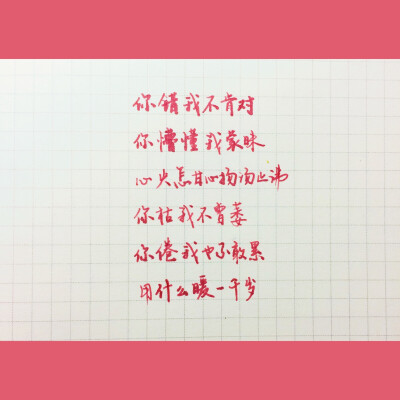 你错我不肯对
你懵懂我蒙昧
心火怎甘心扬汤止沸
你枯我不曾萎
你倦我也不敢累
用什么暖一千岁